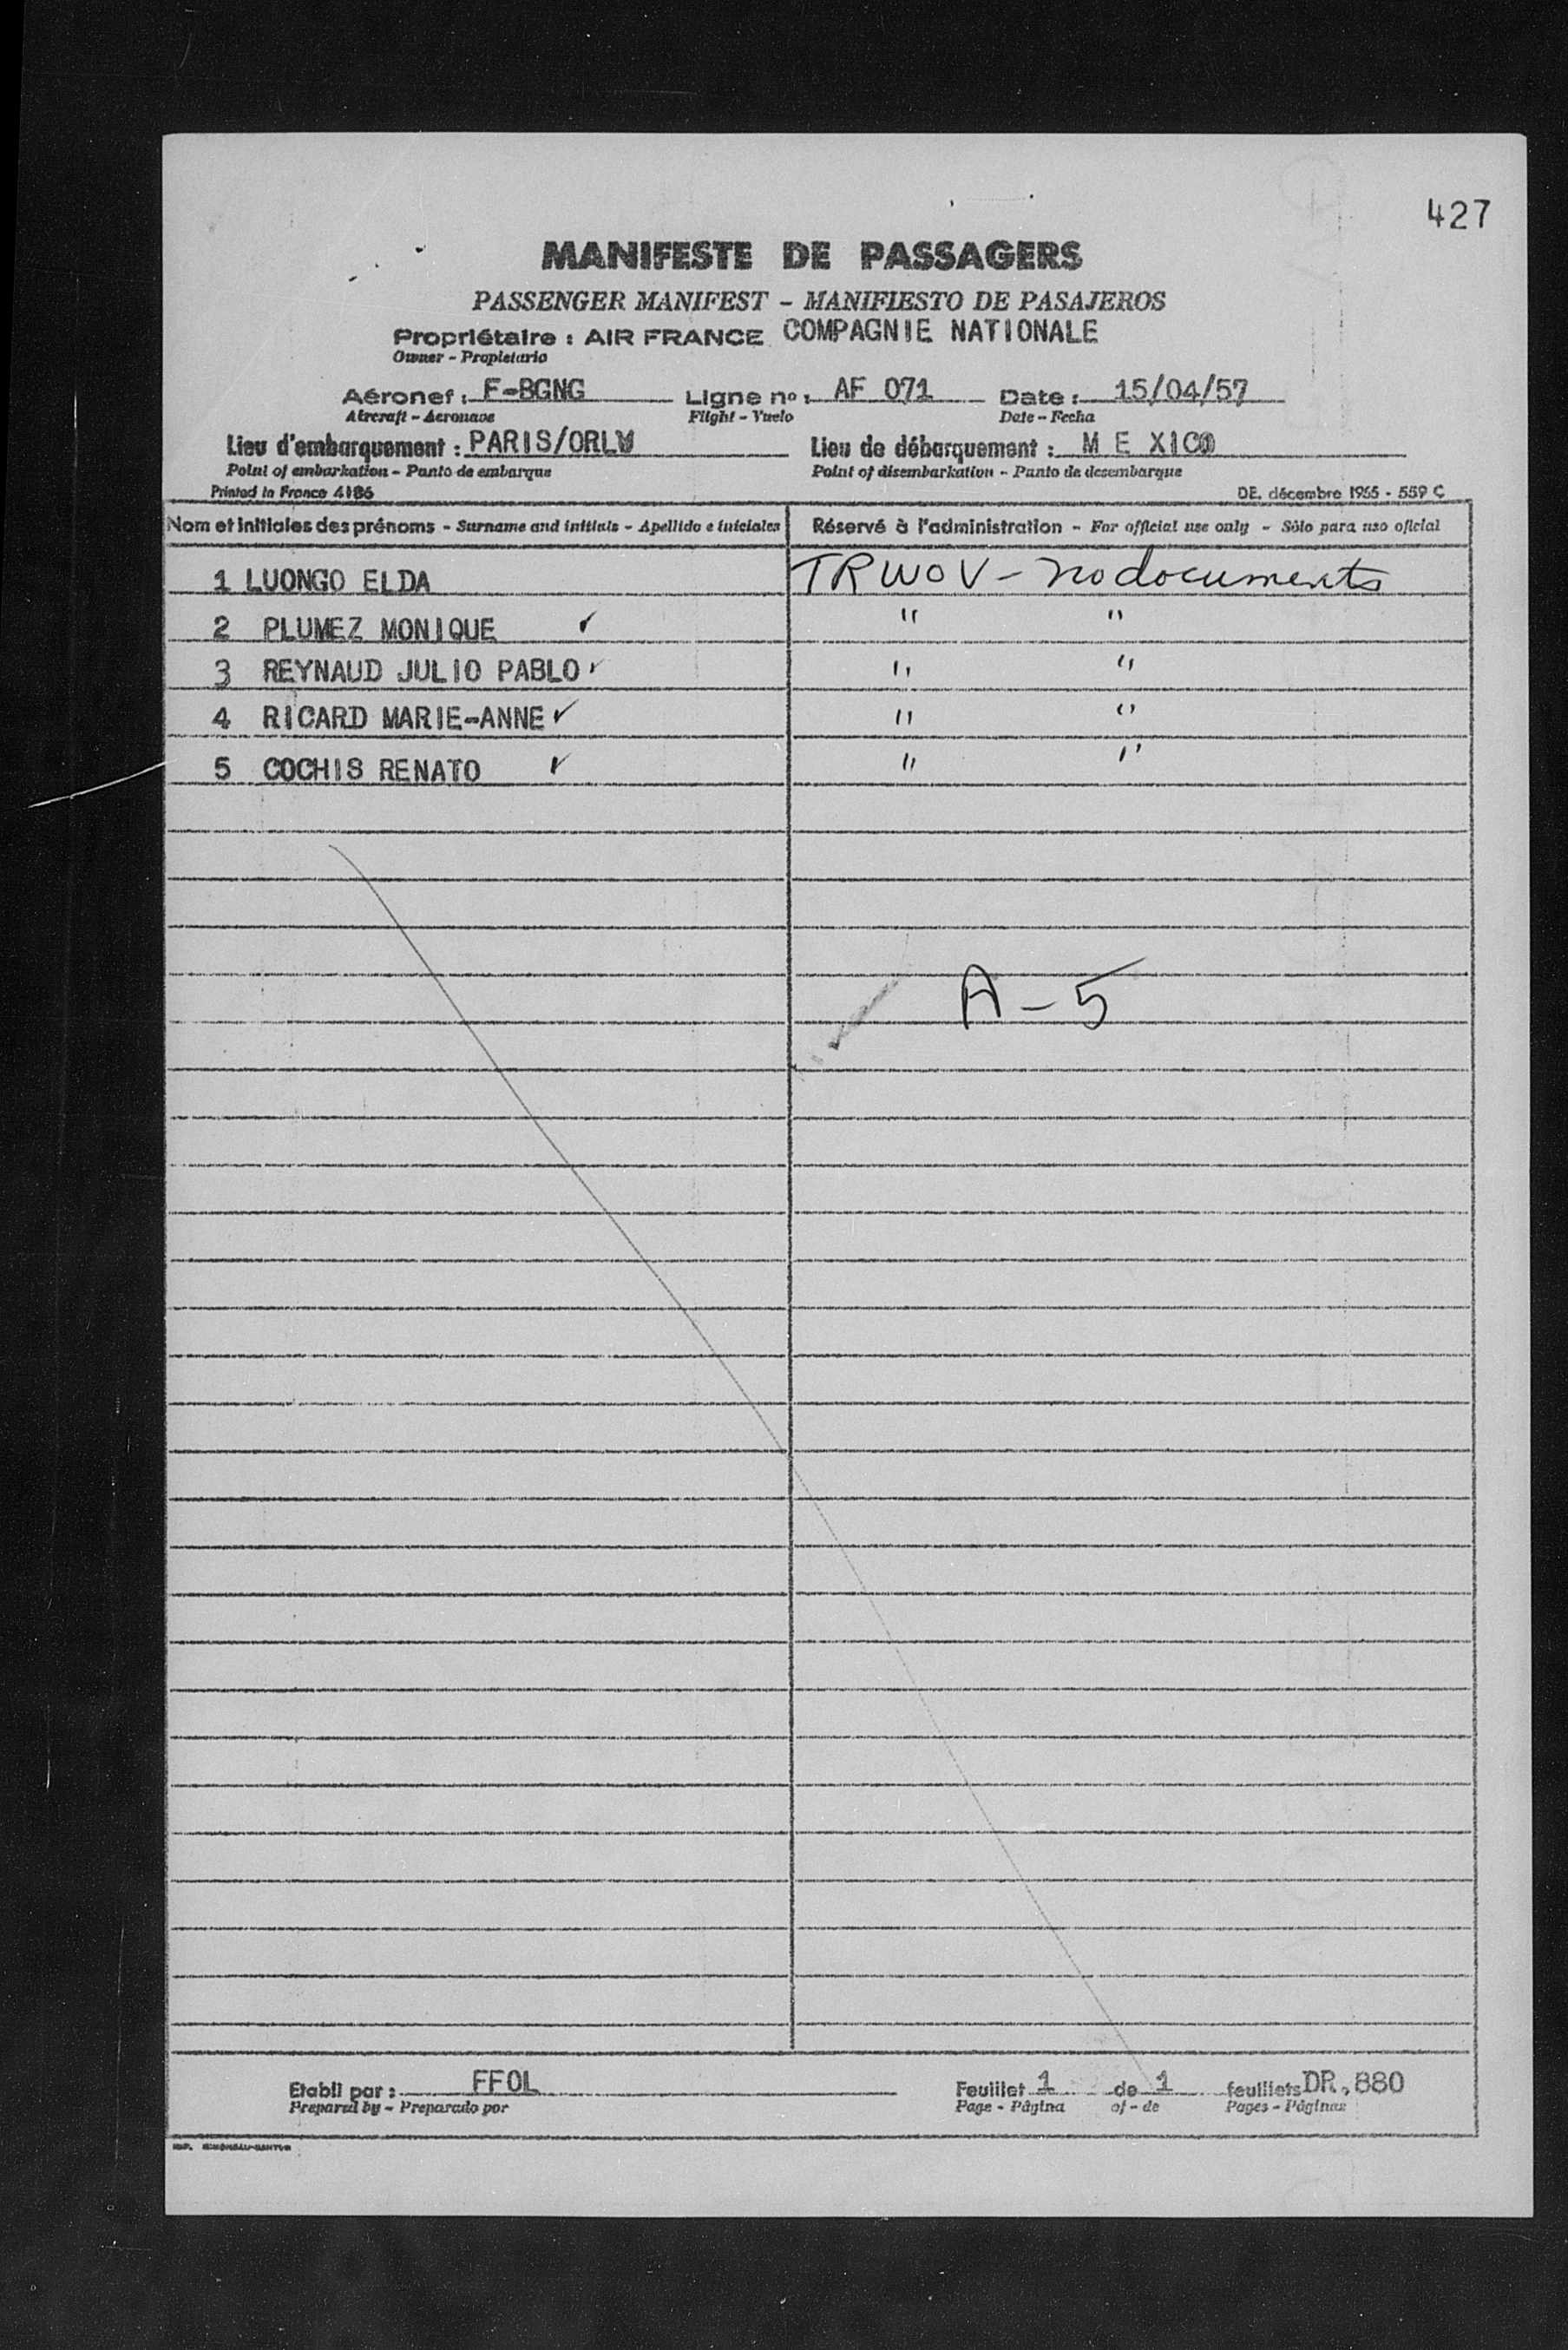 427
MANIFESTE DE PASSAGERS
PASSENGER MANIFEST - MANIFIESTO DE PASAJEROS
Propriétaire : AIR FRANCE COMPAGNIE NATIONALE
Owner - Propietario
Aéronef : F-BGNG Ligne nº : AF 071 Date : 15/04/57
Aircraft - Aeronave Flight - Vuelo Date - Fecha
Lieu d'embarquement : PARIS/ORLY Lieu de débarquement : M E XICO
Point of embarkation - Punto de embarque Point of disembarkation - Punto de desembarque
Printed in France 4186 DE. décembre 1955 - 559 C
Nom et initiales des prénoms - Surname and initials - Apellido e iniciales Réservé à l'administration - For official use only - Sólo para uso oficial
1 LUONGO ELDA TRWOV - no documents
2 PLUMEZ MONIQUE ✓ " "
3 REYNAUD JULIO PABLO ✓ " "
4 RICARD MARIE-ANNE ✓ " "
5 COCHIS RENATO ✓ " "
A - 5
Etabli par : FFOL Feuillet 1 de 1 feuillets DR.880
Prepared by - Preparado por Page - Página of - de Pages - Páginas